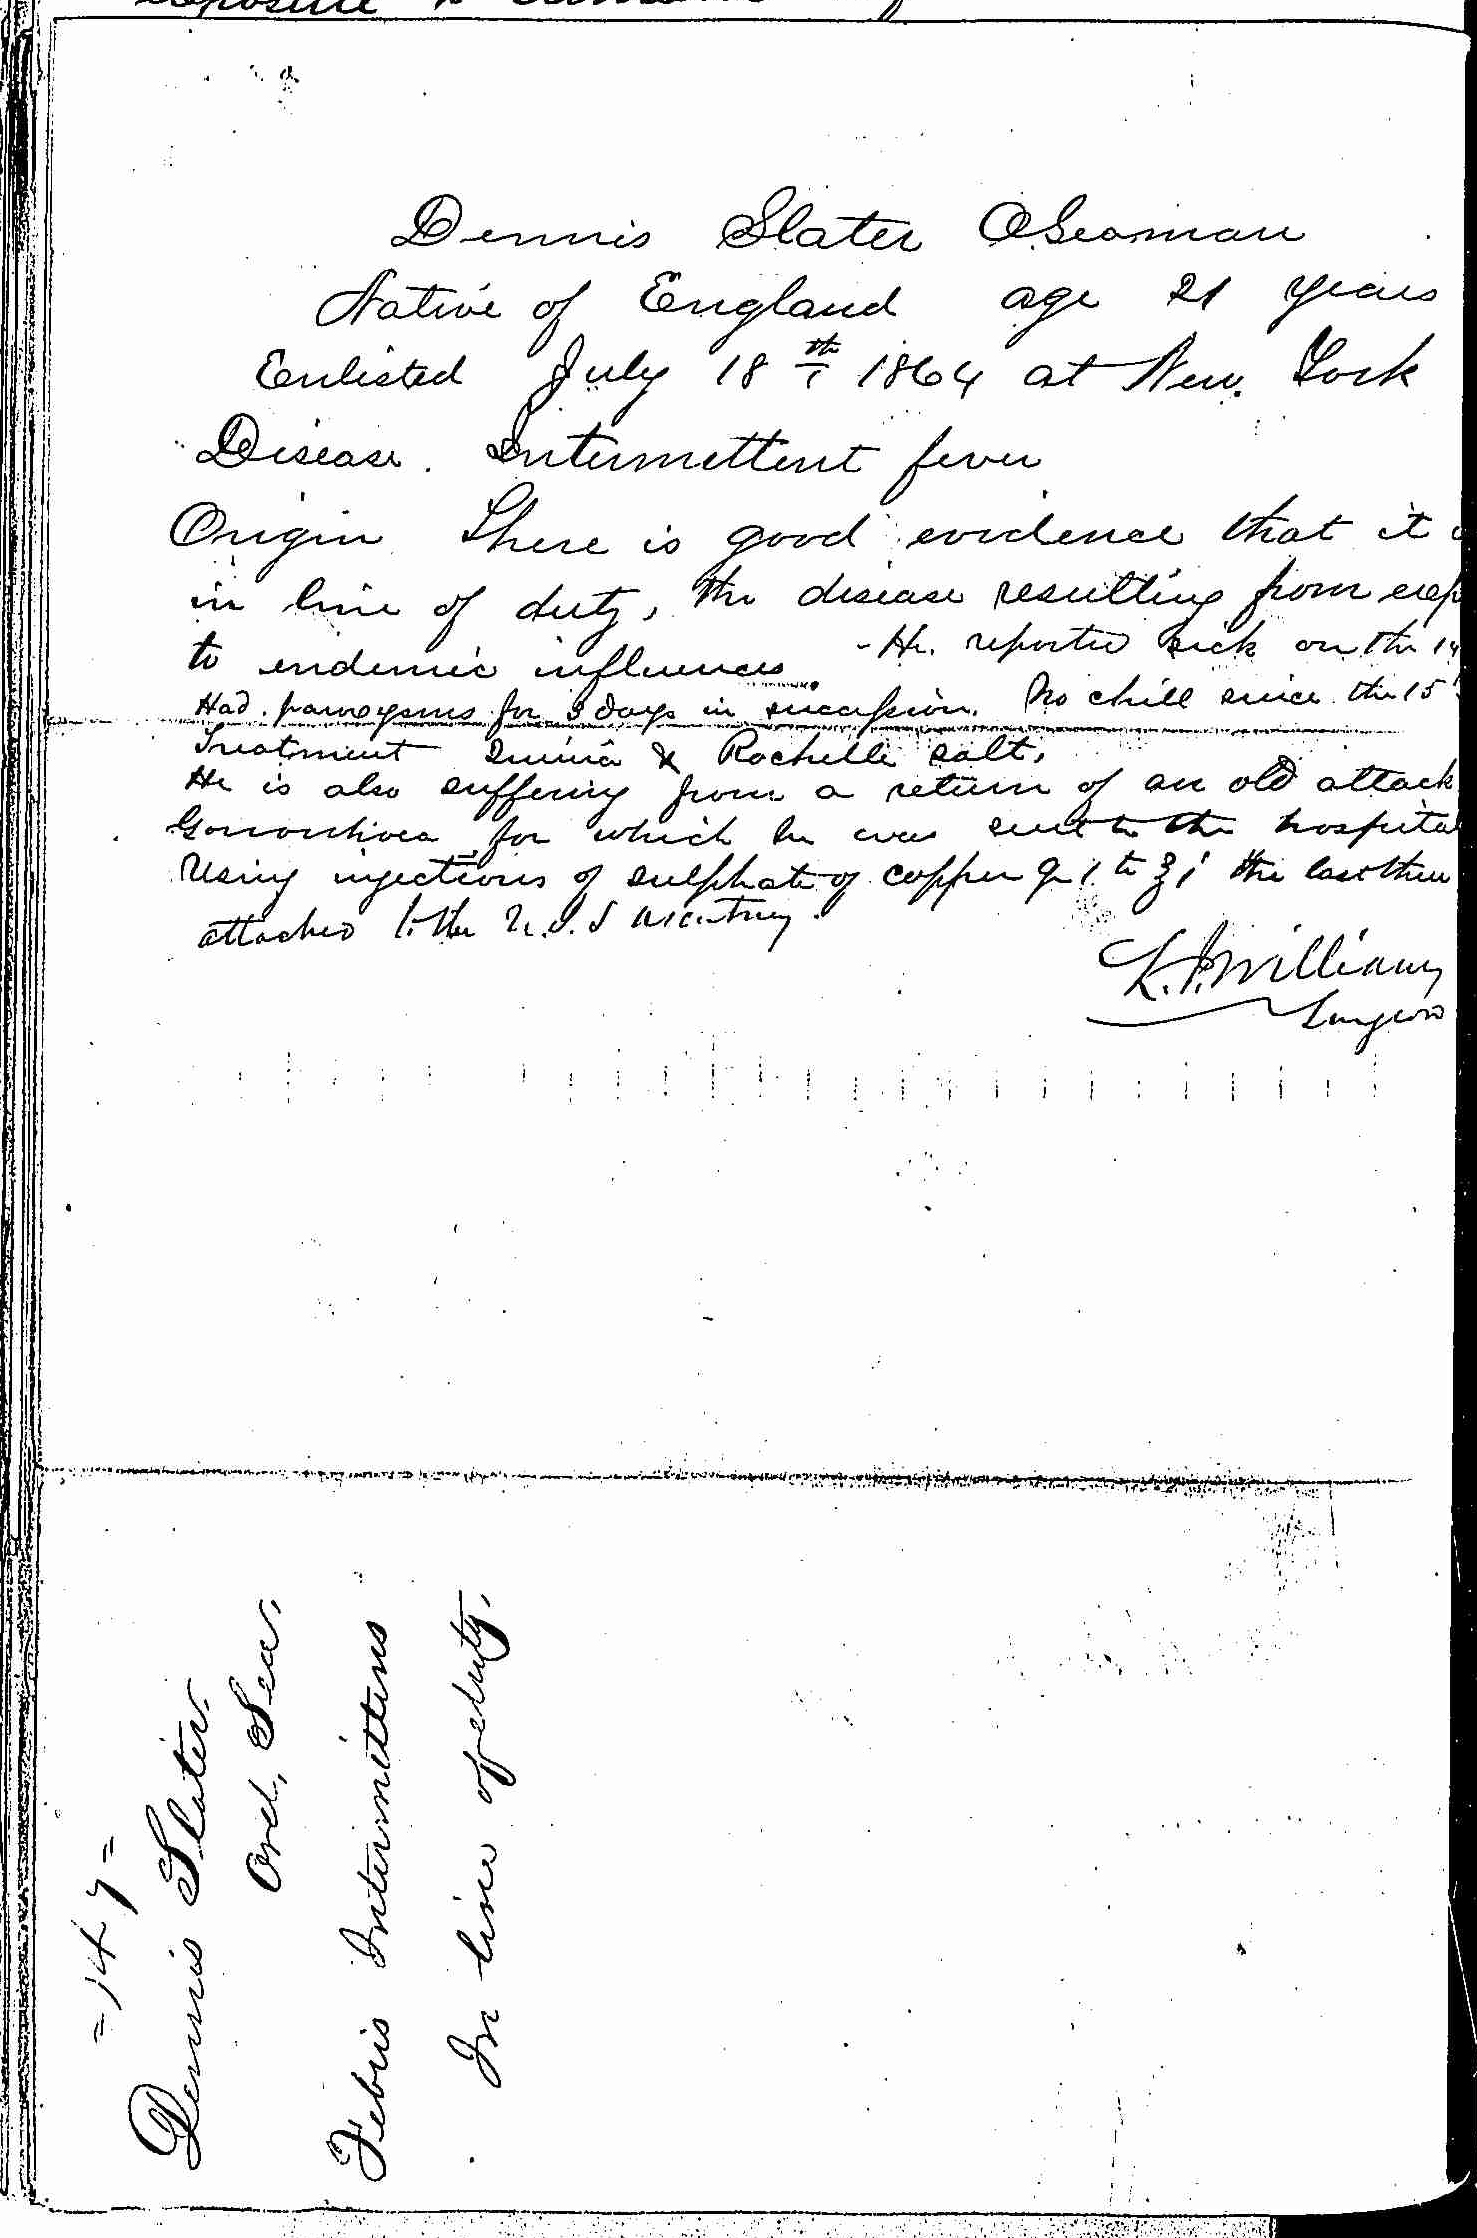 exposure to
Dennis Slater O.Seaman
Native of England age 21 years
Enlisted July 18th 1864 at New York
Disease. Intermittent fever
Origin There is good evidence that it
in line of duty, the disease resulting from exp
to endemic influences. - He reported sick on the 14
Had paroxysms for 3 days in succession. No chill since the 15
Treatment Quinia & Rochelle salt.
He is also suffering from a return of an old attack
Gonorrhoea for which he was sent to the hospital
Using injections of sulphate of copper gr 1 to ℥1 the last three
attached to the U.S.S
L.J. Williams
Surgeon
= 147 =
Dennis Slater
Ord, Sea.
Febris Intermittens
In line of duty.